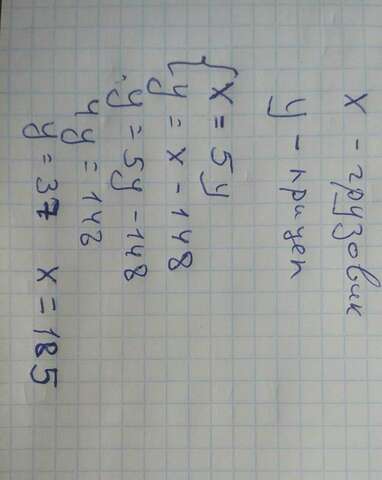 x - грузовик
y - прицеп
x = 5y
y = x - 148
y = 5y - 148
4y = 148
y = 37 x = 185